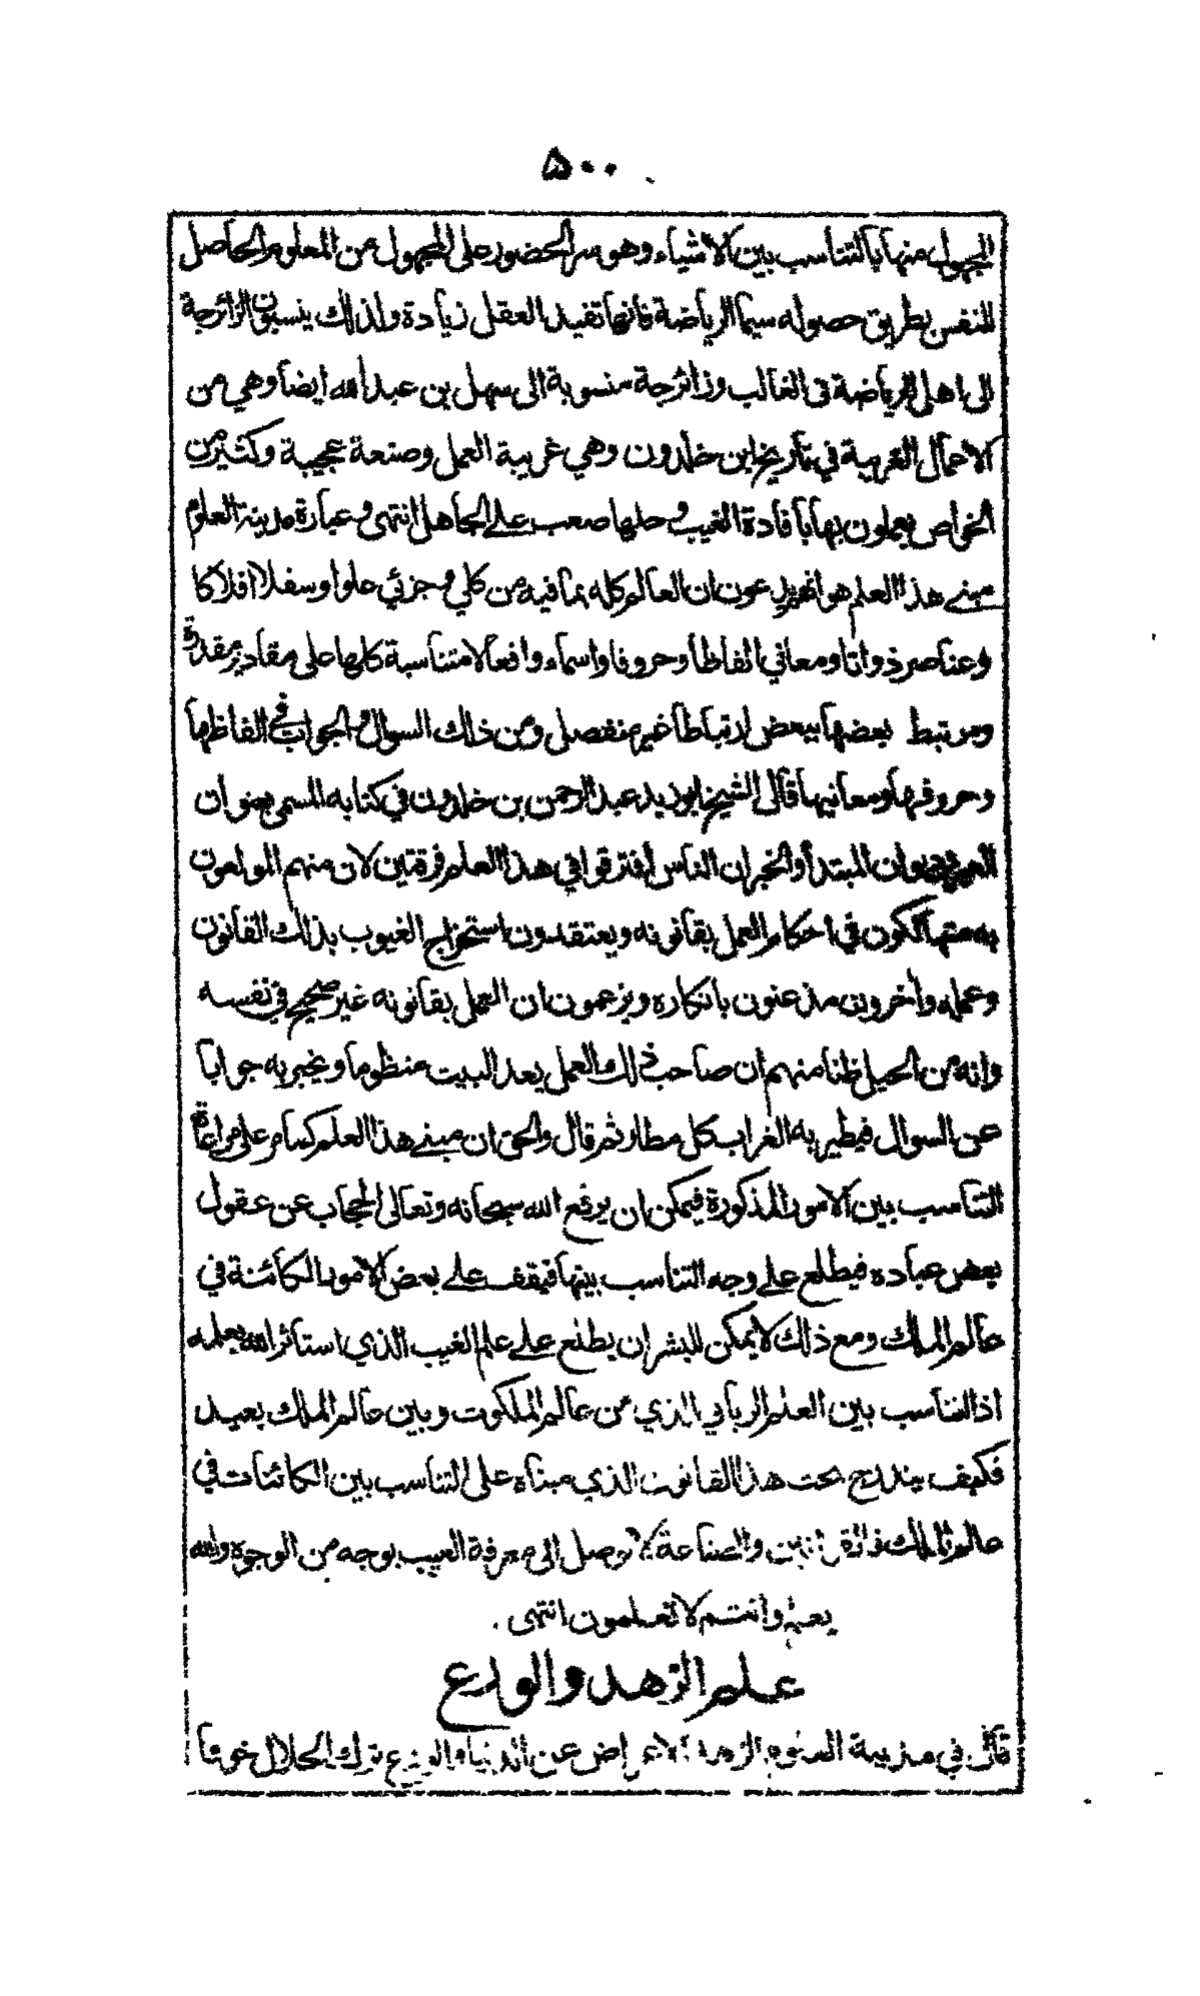 ۵۰۰
المجهول منها بالتناسب بين الاشياء وهو سر الحضور على المجهول من المعلوم الحاصل
للنفس بطريق حصوله سيما الرياضة فانها تفيد العقل زيادة ولذلك ينسبون الزائرجة
الى اهل الرياضة فى الغالب وزائرجة منسوبة الى سهل بن عبد الله ايضا وهي من
الاعمال الغريبة في تاريخ ابن خلدون وهي غريبة العمل وصنعة عجيبة وكثير من
الخواص يعملون بها بافادة الغيب و حلها صعب على الجاهل انتهى و عبارة مدينة العلوم
مبنى هذا العلم هو انهم يدعون ان العالم كله بما فيه من كلي و جزئي علوا وسفلا افلاكا
وعناصر ذواتا ومعاني الفاظا وحروفا واسماء وافعالا متناسبة كلها على مقادير مقدرة
ومرتبط بعضها ببعض ارتباطا غير منفصل ومن ذلك السوال والجواب في الفاظها
وحروفها ومعانيها قال الشيخ ابو زيد عبد الرحمن بن خلدون في كتابه المسمى بعنوان
العبر وديوان المبتدأ والخبر ان الناس افترقوا في هذا العلم فرقتين لان منهم المولعون
به متهالكون في احكام العمل بقانونه ويعتقدون استخراج الغيوب بذلك القانون
وعمله وآخرون مذعنون بانكاره ويزعمون ان العمل بقانونه غير صحيح في نفسه
وانه من الحيل ظنا منهم ان صاحب ذلك العمل يعد البيت منظوما ويخبر به جوابا
عن السوال فيطير به الغراب كل مطار ثم قال والحق ان مبنى هذا العلم كسام على مراعاة
التناسب بين الامور المذكورة فيمكن ان يرفع الله سبحانه وتعالى الحجاب عن عقول
بعض عباده فيطلع على وجه التناسب بينها فيقف على بعض الامور الكائنة في
عالم الملك ومع ذلك لا يمكن للبشر ان يطلع على علم الغيب الذي استاثر الله بعلمه
اذ التناسب بين العلم الرباني الذي من عالم الملكوت وبين عالم الملك بعيد
فكيف يندرج تحت هذا القانون الذي مبناه على التناسب بين الكائنات في
عالم الملك والصناعة لا توصل الى معرفة الغيب بوجه من الوجوه والله
يعلم وانتم لا تعلمون انتهى .
علم الزهد والورع
قال في مدينة العلوم الزهد الاعراض عن الدنيا والورع ترك الحلال خوفا